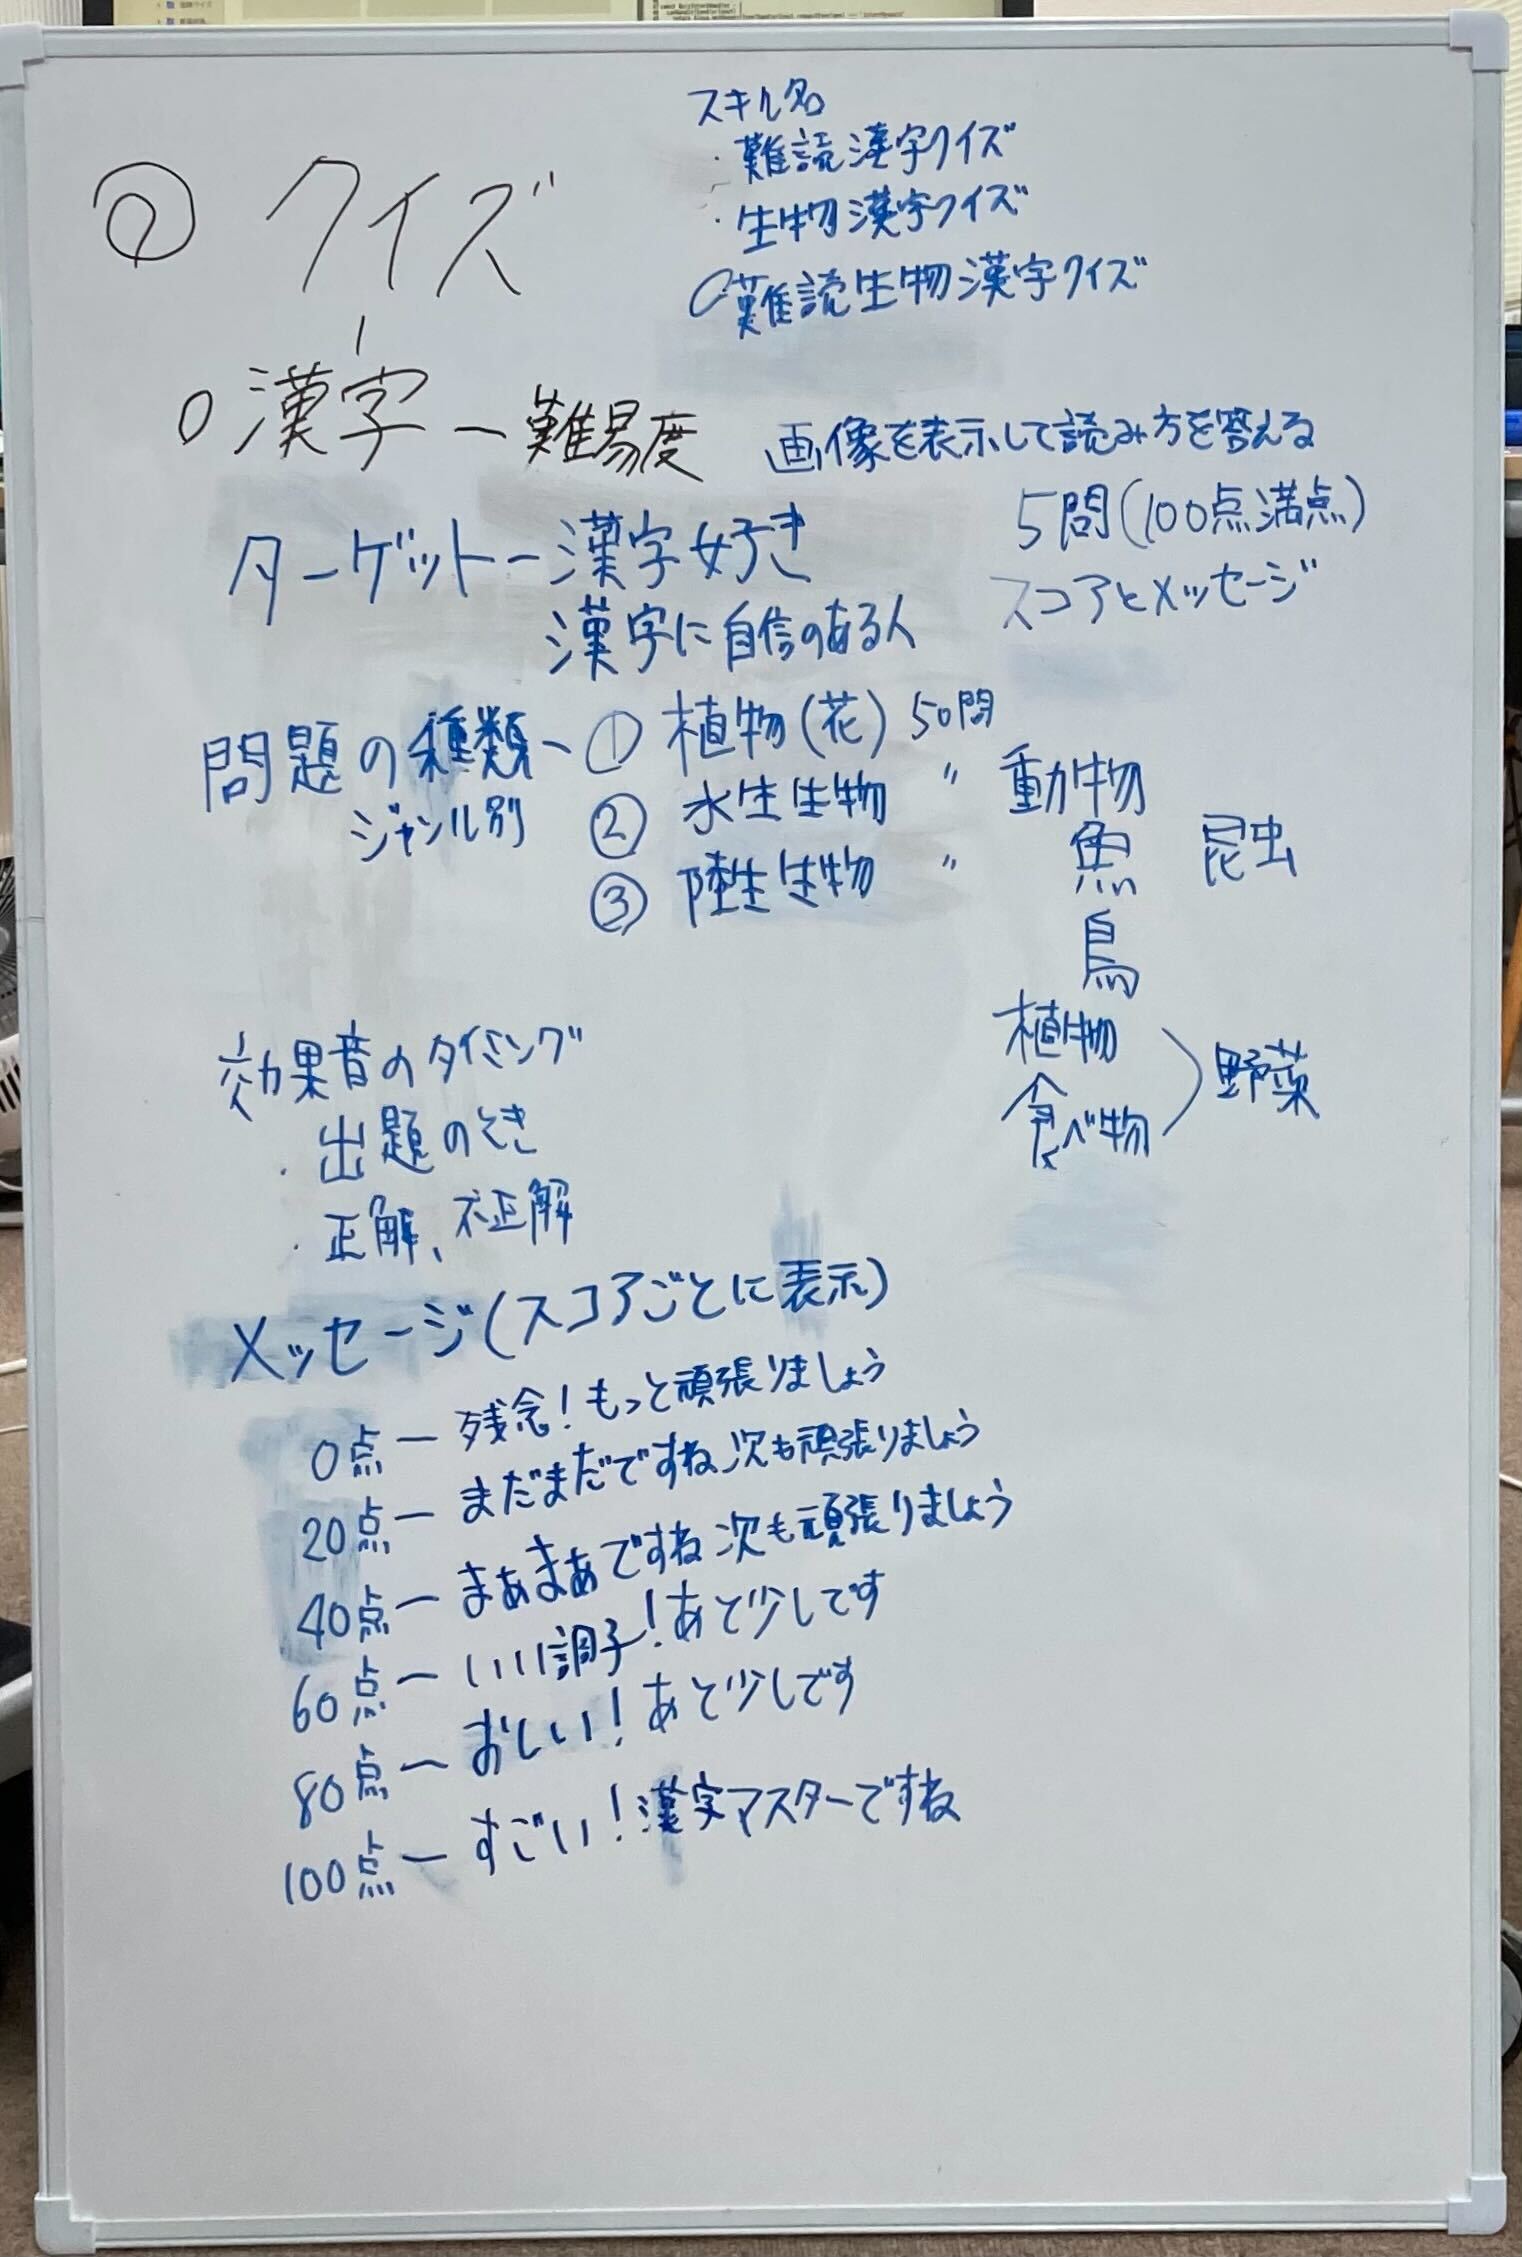 スキル名
・難読漢字クイズ
・生物漢字クイズ
○難読生物漢字クイズ
② クイズ
○漢字ー難易度
画像を表示して読み方を答える
5問(100点満点)
スコアとメッセージ
ターゲットー漢字好き
漢字に自信のある人
問題の種類ー① 植物(花) 50問
ジャンル別 ② 水生生物 〃
③ 陸生生物 〃
動物
魚 昆虫
鳥
植物
食べ物
野菜
効果音のタイミング
・出題のとき
・正解、不正解
メッセージ(スコアごとに表示)
0点ー残念!もっと頑張りましょう
20点ーまだまだですね次も頑張りましょう
40点ーまぁまぁですね次も頑張りましょう
60点ーいい調子!あと少しです
80点ーおしい!あと少しです
100点ーすごい!漢字マスターですね